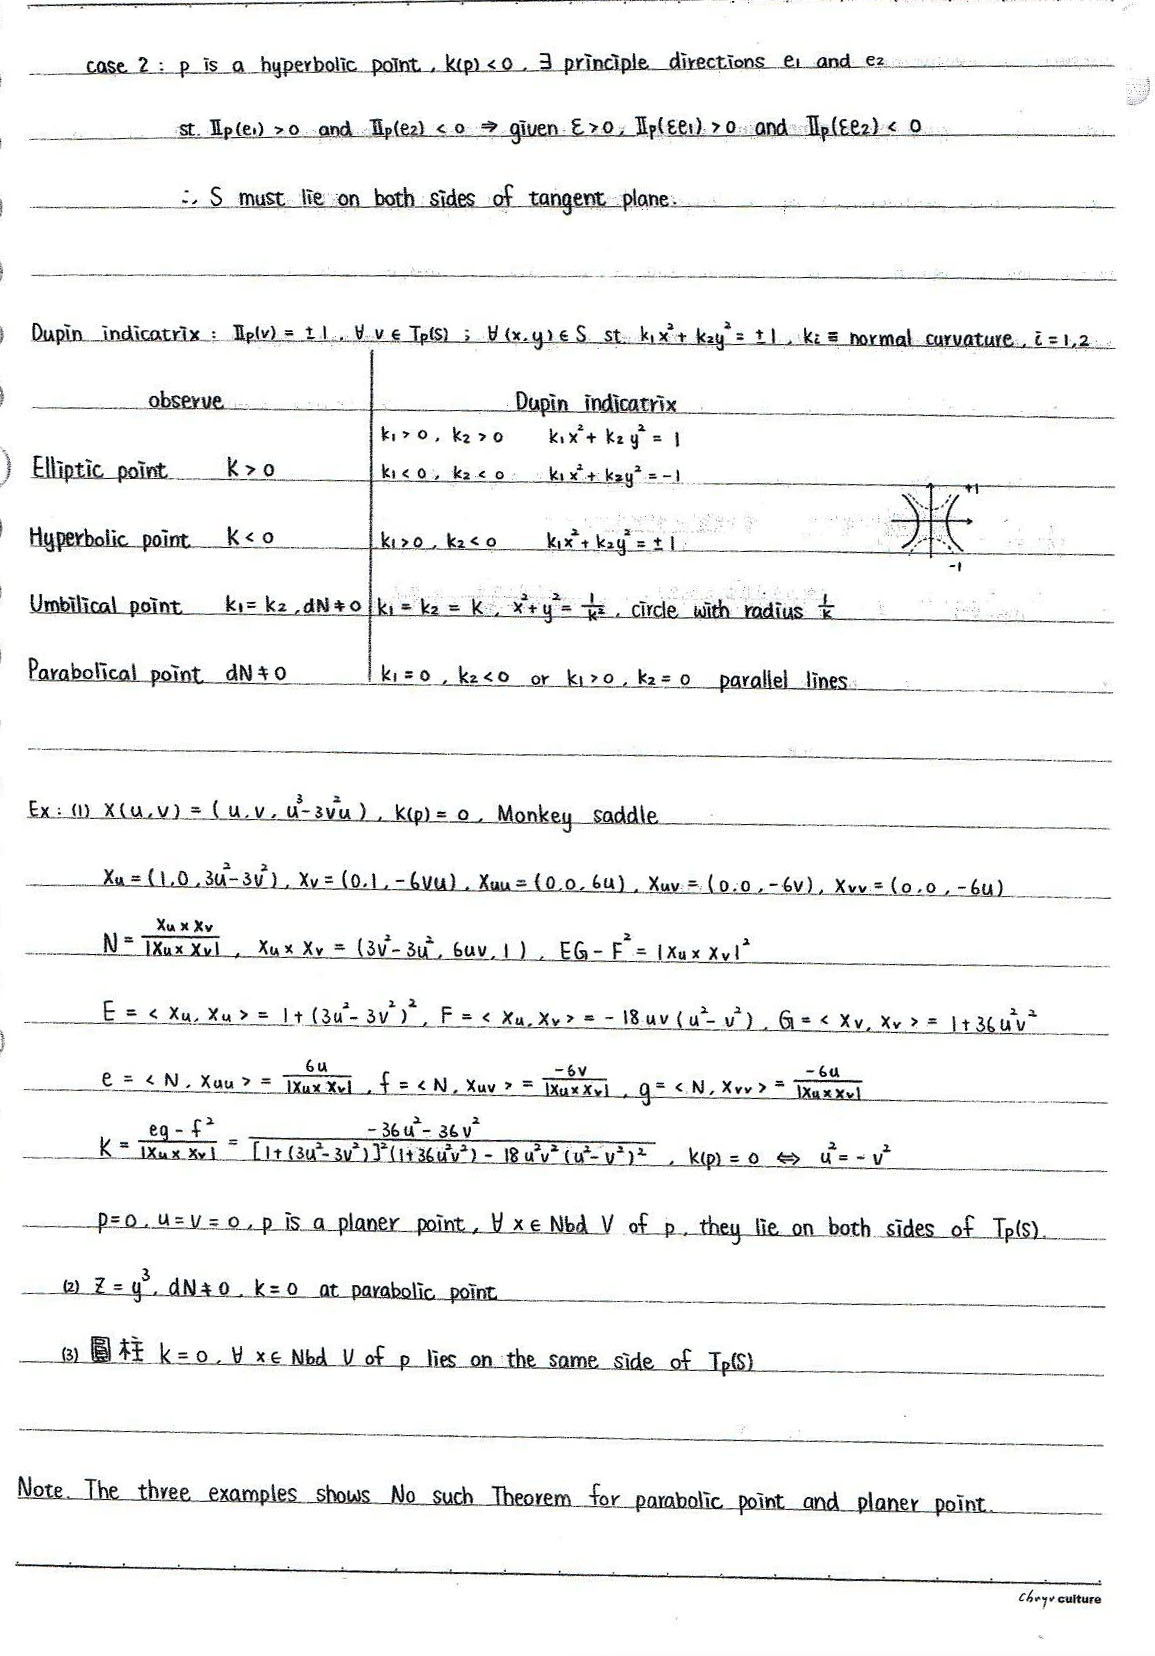 case 2 : p is a hyperbolic point, k(p) < 0, ∃ principle directions e₁ and e₂
st. Ⅱp(e₁) > 0 and Ⅱp(e₂) < 0 ⇒ given ε > 0, Ⅱp(εe₁) > 0 and Ⅱp(εe₂) < 0
∴ S must lie on both sides of tangent plane.
Dupin indicatrix : Ⅱp(v) = ±1, ∀ v ∈ Tp(S) ; ∀ (x, y) ∈ S st. k₁x² + k₂y² = ±1, kᵢ ≡ normal curvature, i = 1,2
observe Dupin indicatrix
k₁ > 0, k₂ > 0 k₁x² + k₂y² = 1
Elliptic point K > 0 k₁ < 0, k₂ < 0 k₁x² + k₂y² = -1
+1
Hyperbolic point K < 0 k₁ > 0, k₂ < 0 k₁x² + k₂y² = ±1
-1
Umbilical point k₁ = k₂, dN ≠ 0 k₁ = k₂ = K, x² + y² = 1/K², circle with radius 1/K
Parabolical point dN ≠ 0 k₁ = 0, k₂ < 0 or k₁ > 0, k₂ = 0 parallel lines
Ex : (1) X(u, v) = (u, v, u³ - 3v²u), K(p) = 0, Monkey saddle
Xu = (1, 0, 3u² - 3v²), Xv = (0, 1, -6vu), Xuu = (0, 0, 6u), Xuv = (0, 0, -6v), Xvv = (0, 0, -6u)
N = Xu × Xv / |Xu × Xv|, Xu × Xv = (3v² - 3u², 6uv, 1), EG - F² = |Xu × Xv|²
E = < Xu, Xu > = 1 + (3u² - 3v²)², F = < Xu, Xv > = -18uv(u² - v²), G = < Xv, Xv > = 1 + 36u²v²
e = < N, Xuu > = 6u / |Xu × Xv|, f = < N, Xuv > = -6v / |Xu × Xv|, g = < N, Xvv > = -6u / |Xu × Xv|
K = eg - f² / |Xu × Xv| = -36u² - 36v² / [1 + (3u² - 3v²)]²(1 + 36u²v²) - 18u²v²(u² - v²)², K(p) = 0 ⇔ u² = -v²
p = 0, u = v = 0, p is a planer point, ∀ x ∈ Nbd V of p, they lie on both sides of Tp(S).
(2) Z = y³, dN ≠ 0, k = 0 at parabolic point
(3) 圓柱 k = 0, ∀ x ∈ Nbd V of p lies on the same side of Tp(S)
Note. The three examples shows No such Theorem for parabolic point and planer point.
culture